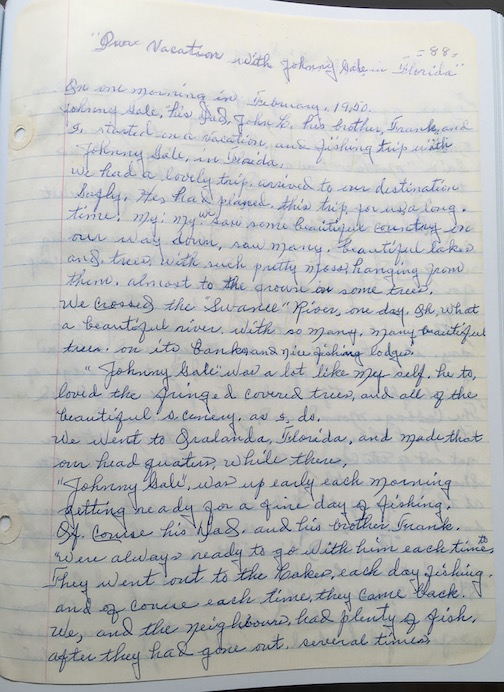 -88-
"Our Vacation with Johnny Gale in Florida"
On one morning in February, 1950.
Johnny Gale, his Dad, John L. his brother, Frank, and
I, started on a vacation, and fishing trip with
Johnny Gale, in Florida.
We had a lovely trip, arrived to our destination
Safly. He's had planed, this trip, for us, a long.
time. My! My! we saw some beautiful country in
our way down, saw many, beautiful lakes
and, trees, with such pretty moss, hanging from
them, almost to the groun in some trees.
We crossed the "Swanee" River, one day. Oh, what
a beautiful river, with so many, many beautiful
trees. on its banks and nice fishing lodges.
"Johnny Gale" was a lot like my self. he to,
loved the fringed covered trees, and all of the
beautiful scenery, as I, do.
We went to Oralanda, Florida, and made that
our head quaters, while there,
"Johnny Gale", was up early each morning
getting ready for a fine day of fishing.
Of. Course his Dad. and his brother, Frank.
were always ready to go with him each time to
They went out to the Lakes, each day fishing.
and of couse each time, they came back.
We, and the neighbours, had plenty of fish,
after they had gone out. several times,